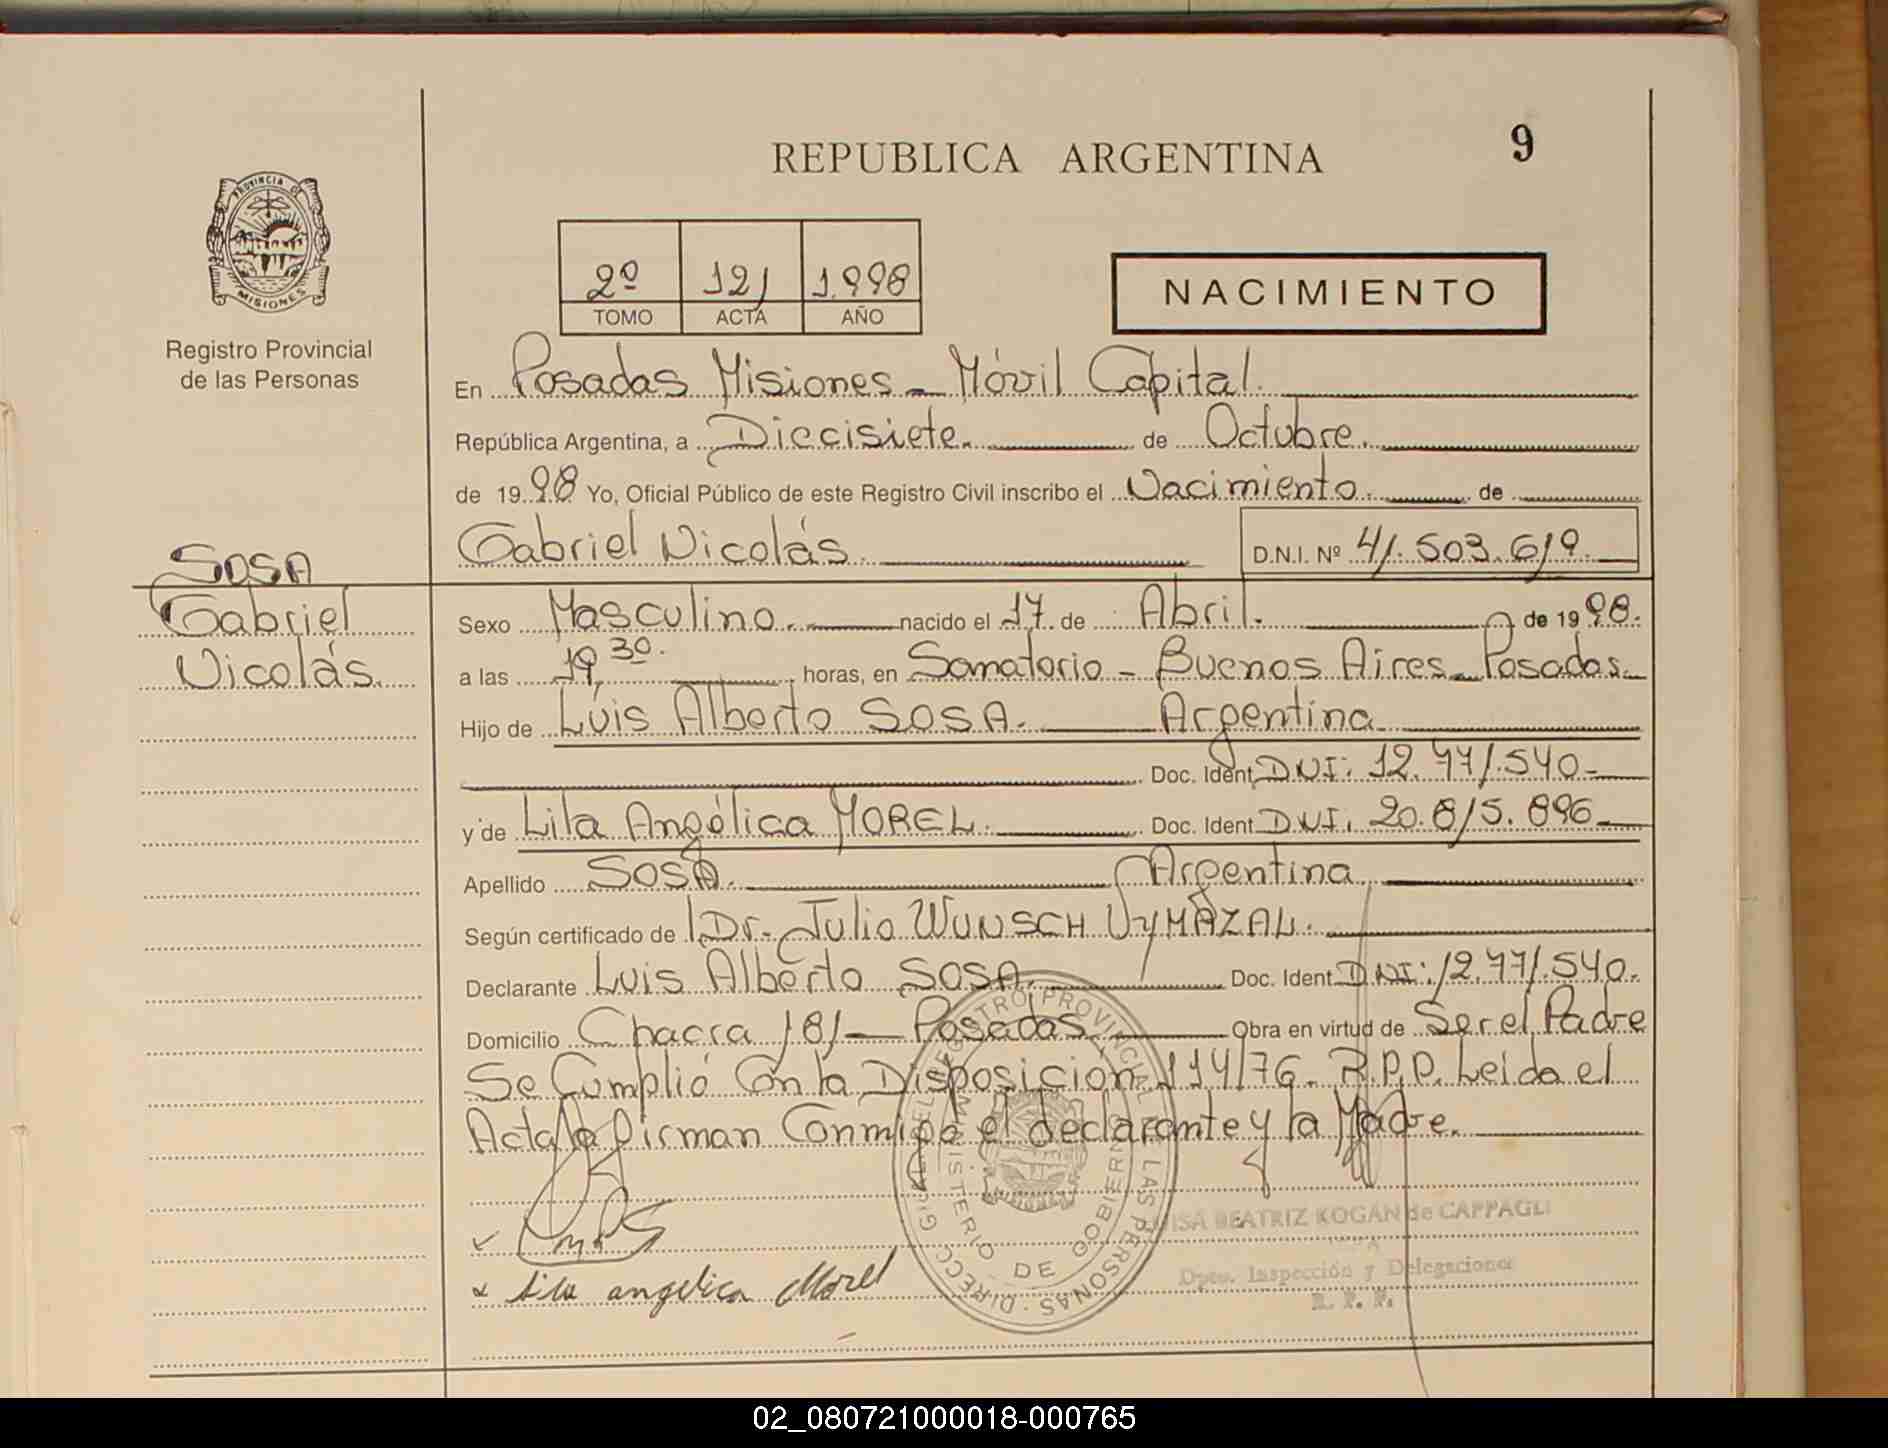 REPUBLICA ARGENTINA
9
PROVINCIA DE
MISIONES
Registro Provincial
de las Personas
2º 121 1.998
TOMO ACTA AÑO
NACIMIENTO
En Posadas Misiones - Móvil Capital.
República Argentina, a Diecisiete. de Octubre.
de 1998 Yo, Oficial Público de este Registro Civil inscribo el Nacimiento. de
Gabriel Nicolás. D.N.I. Nº 41.503.619.
SOSA
Gabriel
Nicolás.
Sexo Masculino. nacido el 17 de Abril. de 1998.
a las 19,30. horas, en Sanatorio - Buenos Aires - Posadas.
Hijo de Luis Alberto SOSA. Argentina
Doc. Ident. DNI: 12.771.540
y de Lita Angélica MOREL. Doc. Ident. DNI. 20.815.896
Apellido SOSA. Argentina
Según certificado de Dr. Julio WUNSCH VYMAZAL.
Declarante Luis Alberto SOSA. Doc. Ident. DNI: 12.771.540.
Domicilio Chacra 181 - Posadas. Obra en virtud de Ser el Padre
Se Cumplió Con la Disposición 114/76. R.P.P. Leída el
Acta la firman Conmigo el declarante y la Madre.
DIRECCION DEL REGISTRO PROVINCIAL DE LAS PERSONAS
MINISTERIO DE GOBIERNO
LUISA BEATRIZ KOGAN de CAPPAGLI
Dpto. Inspección y Delegaciones
R. P. P.
Lila angelica Morel
02_080721000018-000765